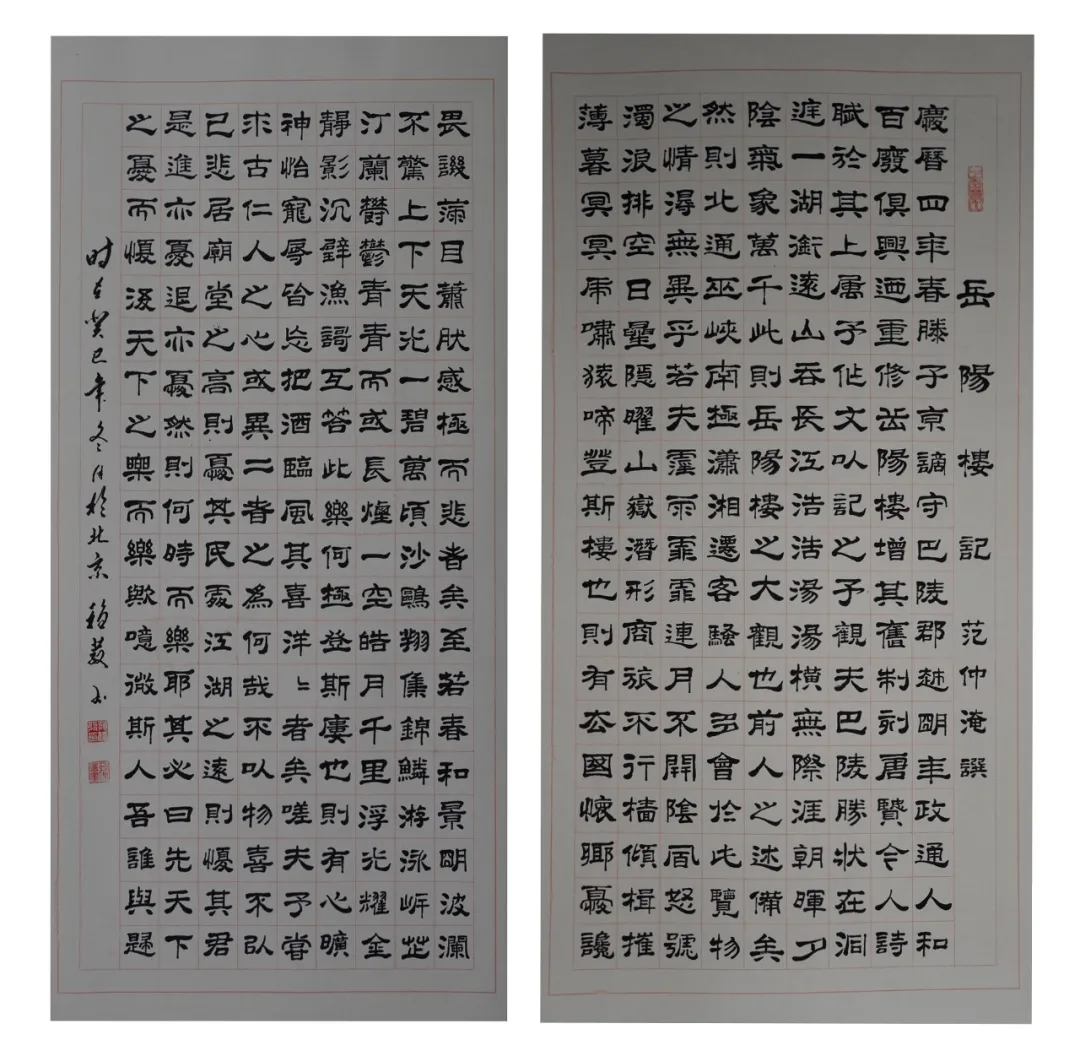 岳陽樓記 范仲淹譔
慶曆四年春滕子京謫守巴陵郡越明年政通人和
百廢俱興迺重修岳陽樓增其舊制刻唐賢今人詩
賦於其上屬予作文以記之予觀夫巴陵勝狀在洞
庭一湖銜遠山吞長江浩浩湯湯橫無際涯朝暉夕
陰氣象萬千此則岳陽樓之大觀也前人之述備矣
然則北通巫峽南極瀟湘遷客騷人多會於此覽物
之情得無異乎若夫霪雨霏霏連月不開陰風怒號
濁浪排空日星隱曜山嶽潛形商旅不行檣傾楫摧
薄暮冥冥虎嘯猿啼登斯樓也則有去國懷鄉憂讒
畏譏滿目蕭然感極而悲者矣至若春和景明波瀾
不驚上下天光一碧萬頃沙鷗翔集錦鱗游泳岸芷
汀蘭鬱鬱青青而或長煙一空皓月千里浮光耀金
靜影沉璧漁謌互答此樂何極登斯廔也則有心曠
神怡寵辱皆忘把酒臨風其喜洋〻者矣嗟夫予嘗
求古仁人之心或異二者之為何哉不以物喜不以
己悲居廟堂之高則憂其民處江湖之遠則懮其君
是進亦憂退亦憂然則何時而樂耶其必曰先天下
之憂而懮後天下之樂而樂歟噫微斯人吾誰與歸
时在癸巳年冬月於北京 书